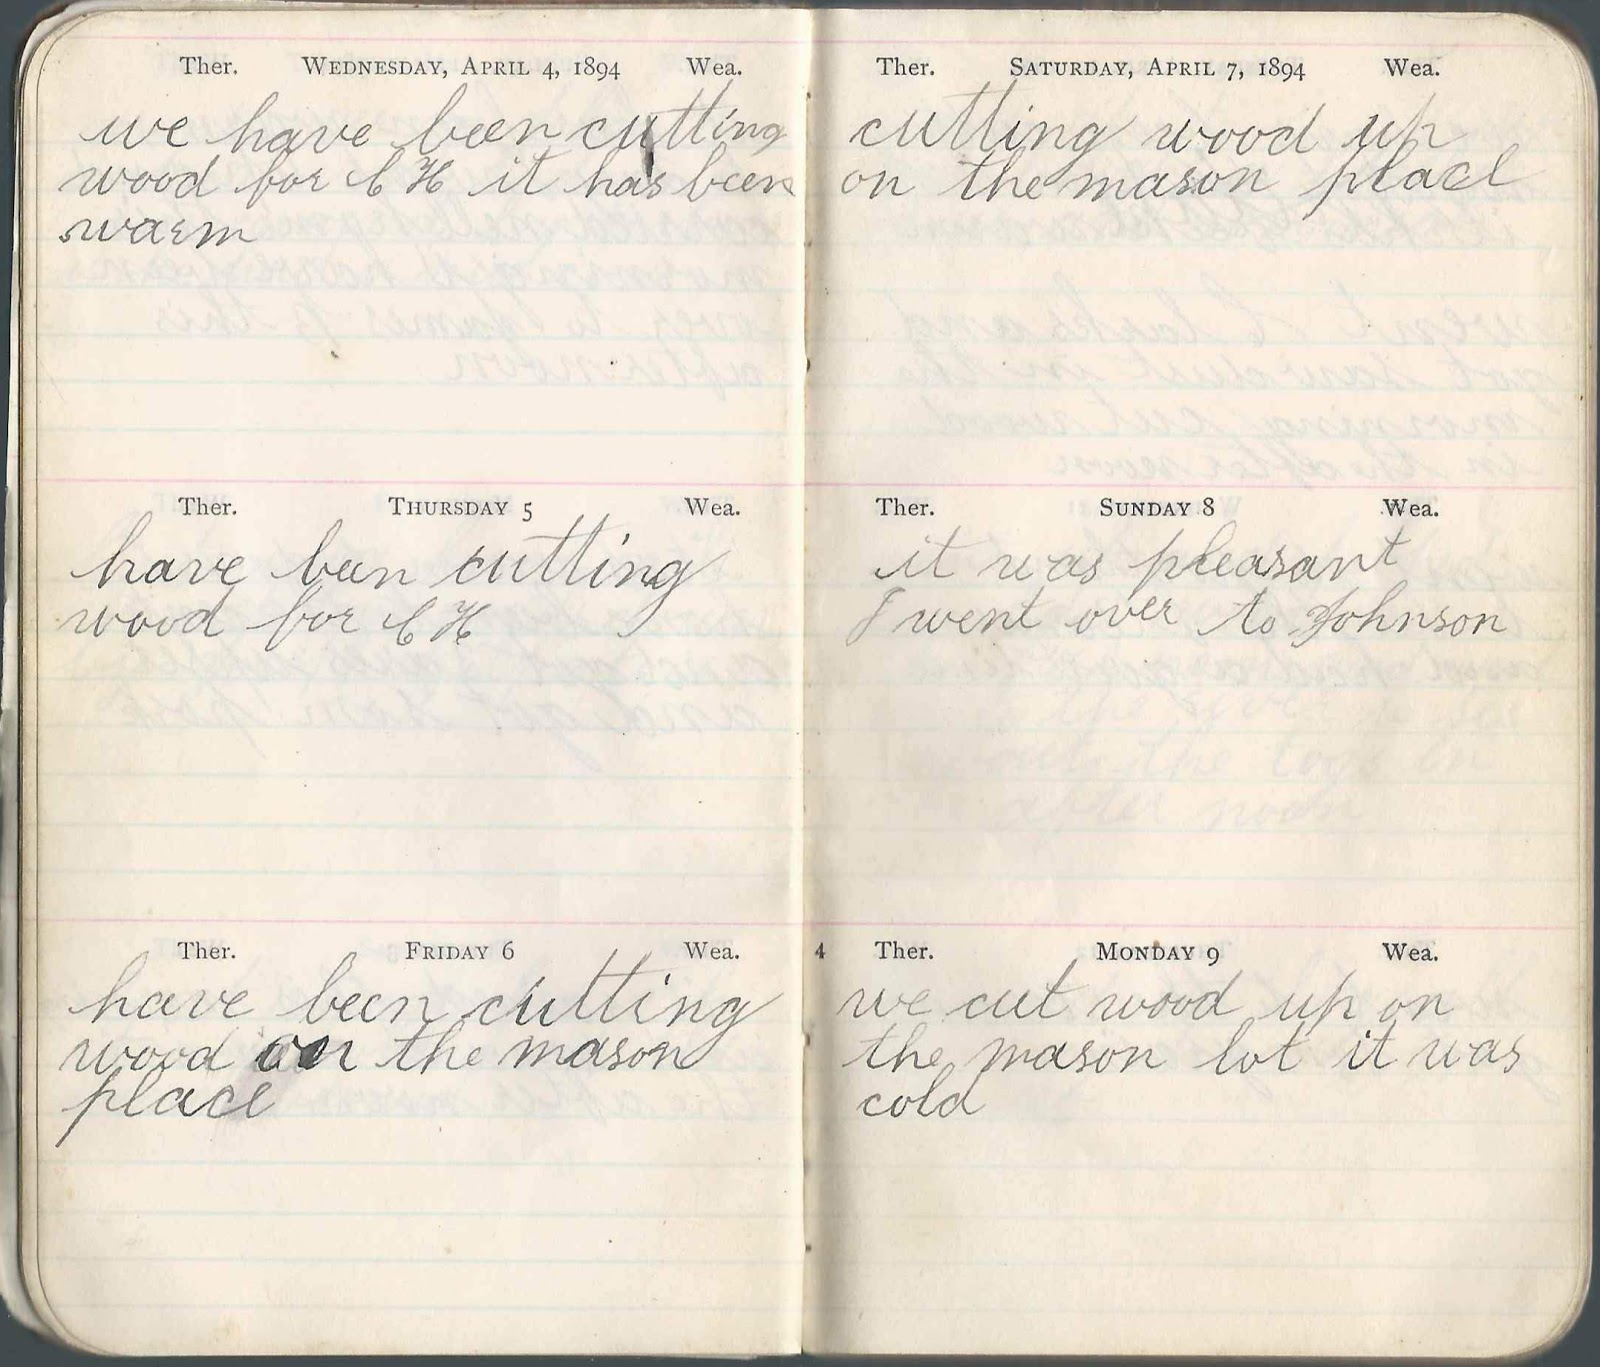 Ther. WEDNESDAY, APRIL 4, 1894 Wea.
we have been cutting
wood for C H it has been
warm
Ther. THURSDAY 5 Wea.
have ben cutting
wood for C H
Ther. FRIDAY 6 Wea.
have been cutting
wood on the mason
place
Ther. SATURDAY, APRIL 7, 1894 Wea.
cutting wood up
on the mason place
Ther. SUNDAY 8 Wea.
it was pleasant
I went over to Johnson
4 Ther. MONDAY 9 Wea.
we cut wood up on
the mason lot it was
cold